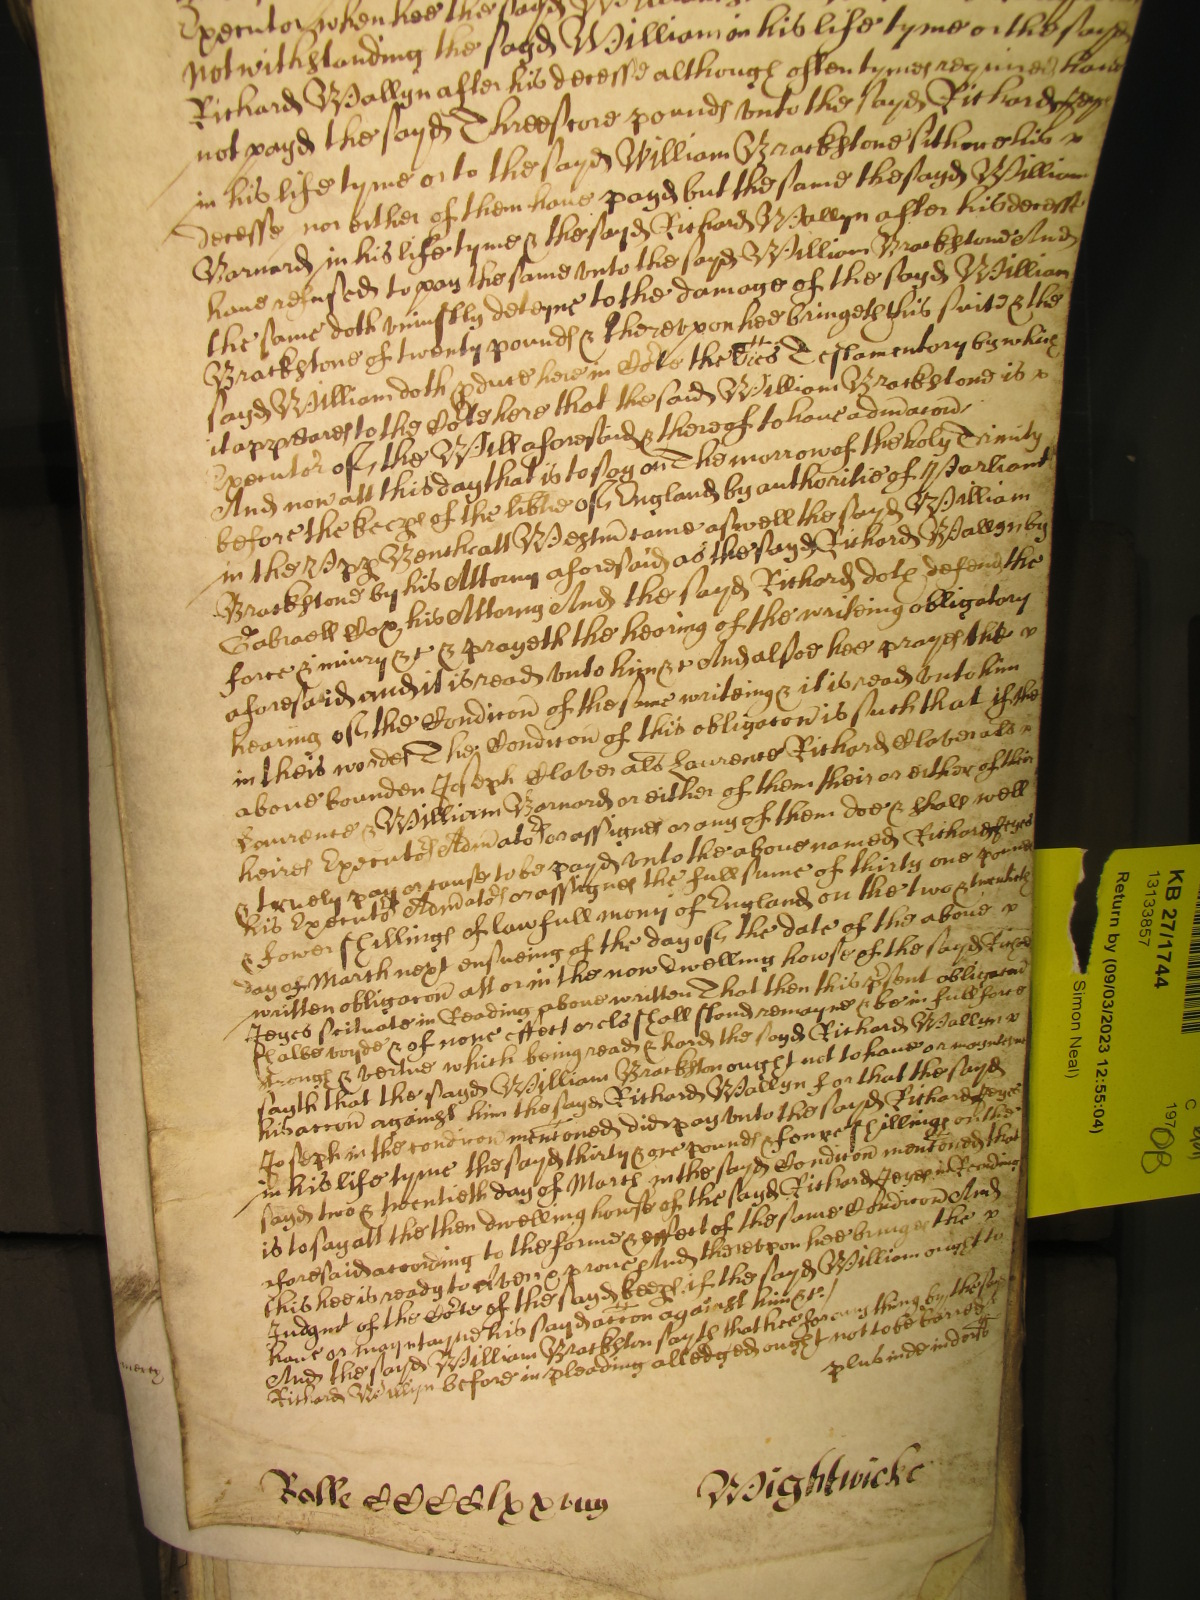 Executor when hee the sayd William
notwithstanding the sayd William in his life tyme or the sayd
Richard Wallyn after his decesse although often tymes required have
not payd the sayd Threescore pounds unto the sayd Richard Jeyes
in his life tyme or to the sayd William Brackstone sithence his
decesse nor either of them have payd but the same the sayd William
Barnard in his life tyme & the sayd Richard Wallyn after his decesse
have refused to pay the same unto the sayd William Brackstone And
the same doth uniustly deteyne to the damage of the sayd William
Brackstone of twenty pounds & thereupon hee bringeth his suite & the
sayd William doth pduce here in Cote the Lres Testamentory by which
it appeares to the Cote here that the said William Brackstone is
Executor of the Will aforesaid & thereof to have admacon
And now att this day that is to say on The morrow of the holy Trinity
before the keeps of the libtie of England by authoritie of Parliamt
in the Upp Bench att Westm came aswell the sayd William
Brackstone by his Attorny aforesaid as the sayd Richard Wallyn by
Gabraell Cox his Attorny And the sayd Richard doth defend the
force & iniury &c & prayeth the hearing of the writeing obligatory
aforesaid and it is read unto him &c And alsoe hee prayes the
hearing of the Condicon of the same writeing & it is read unto him
in theis wordes The Condicon of this obligacon is such that if the
above bounden Joseph Claver als Laurence Richard Claver als
Laurence & William Barnard or either of them their or either of their
heires Executors Admators or assignes or any of them doe & shall well
& truely pay or cause to be payd unto the above named Richard Jeyes
his Executors Admators or assignes the full sume of thirty one pounds
& fower shillings of lawfull mony of England on the two & twentieth
day of March next ensueing of the day of the date of the above
written obligacon att or in the now dwelling howse of the sayd Richard
Jeyes scituate in Reading above written That then this psent obligacon
shalbe voyde & of none effect or els shall stand remayne & be in full force
strength & vertue which being read & hard the sayd Richard Wallyn
sayth that the sayd William Brackston ought not to have or maynteyne
his accon against him the sayd Richard Wallyn for that the sayd
Joseph in the condicon mencioned did pay unto the sayd Richard Jeyes
in his life tyme the sayd thirty & one pounds & fower shillings on the
sayd two & twentieth day of March in the sayd Condicon mencioned that
is to say att the then dwelling howse of the sayd Richard Jeyes in Reading
aforesaid according to the forme & effect of the same Condicon And
this hee is ready to aver & prove And thereupon hee bringes the
Judgmt of the Cote of the sayd keeps if the sayd William ought to
have or mayntayne his sayd accon against him &c
And the sayd William Brackston sayth that hee for any thing by the sayd
Richard Wallyn before in pleading alledged ought not to be barred
plus inde in dorso
Rolle CCCClxxviiij Wightwicke
KB 27/1744
13133857
Return by (09/03/2023 12:55:04)
Simon Neal)